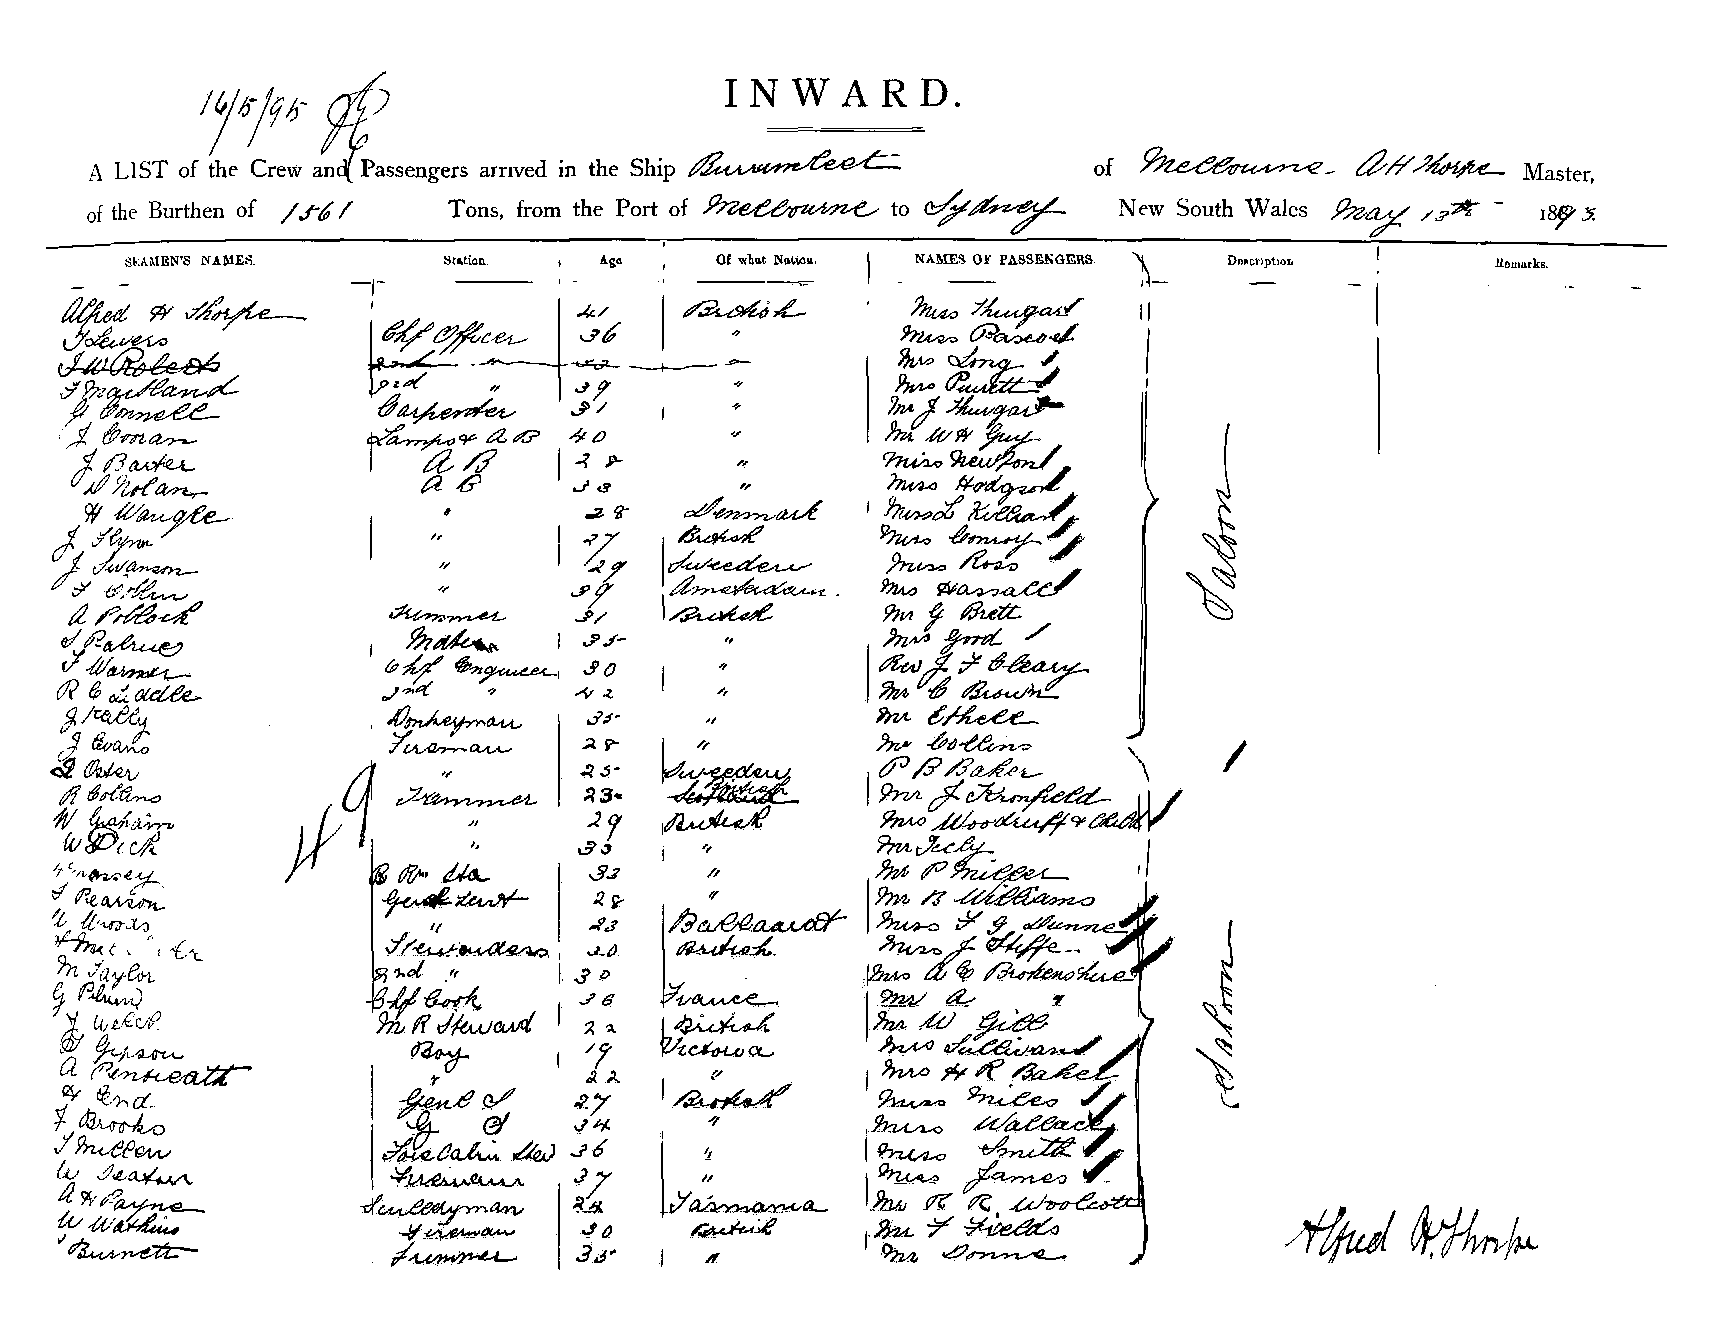 INWARD.
16/5/95
A LIST of the Crew and Passengers arrived in the Ship Burrumbeet of Melbourne A H Thorpe Master,
of the Burthen of 1561 Tons, from the Port of Melbourne to Sydney New South Wales May 13th 1895.
SEAMEN'S NAMES. Station. Age Of what Nation. NAMES OF PASSENGERS. Description Remarks.
Alfred H Thorpe 41 British Miss Thurgart
Chf Officer 36 " Miss Pascoe
J W Roberts 2nd " " Mrs Long
F Maitland 3rd " 39 " Mrs
G Connell Carpenter 31 " Mr J Thurgart
J Conran Lamps & A B 40 " Mr W H Guy
J Baxter A B 28 " Miss Newton
D Nolan A B 33 " Miss Hodgson
H Waugle " 28 Denmark Miss L Killian
J Flynn " 27 British Miss Conroy
J Swanson " 29 Sweeden Miss Ross
F Collin " 39 Amsterdam. Mrs Hassall
A Pollock Trimmer 31 British Mr G Brett
35 " Mrs Good
Warner Chf Engineer 30 " Rev J F Cleary
R C Liddle 2nd " 42 " Mr C Brown
J Kally Donkeyman 35 " Mr Ethell
J Evans Fireman 28 " Mr Collins
Oster " 25 Sweeden P B Baker
R Collins Trimmer 23 British Mr J Kronfield
W Graham " 29 British Mrs Woodruff & Child
W Dick " 33 " Mr
Massey B Rm Sta 33 " Mr P Miller
Pearson Genl Servt 28 " Mr B Williams
W Woods " 23 Ballaarat Miss F G Dunne
Stewardess 30 British Miss J Stiffe
M Taylor 2nd " 30 Mrs A C Brokenshire
G Chf Cook 36 France Mr A "
J Welch M R Steward 22 British Mr W Gill
Gipson Boy 19 Victoria Mrs Sullivan
A Penticath " 22 " Mrs H R Baker
H End Genl S 27 British Miss Miles
J Brooks G S 34 " Miss Wallace
Millen Fore Cabin Stew 36 " Miss Smith
W Seaton Fireman 37 " Miss James
A H Payne Sculleryman 24 Tasmania Mr R R. Woolcott
W Watkins Fireman 30 British Mr F Fields
Burnett Trimmer 35 " Mr Donne
Saloon
Saloon
49
Alfred H. Thorpe